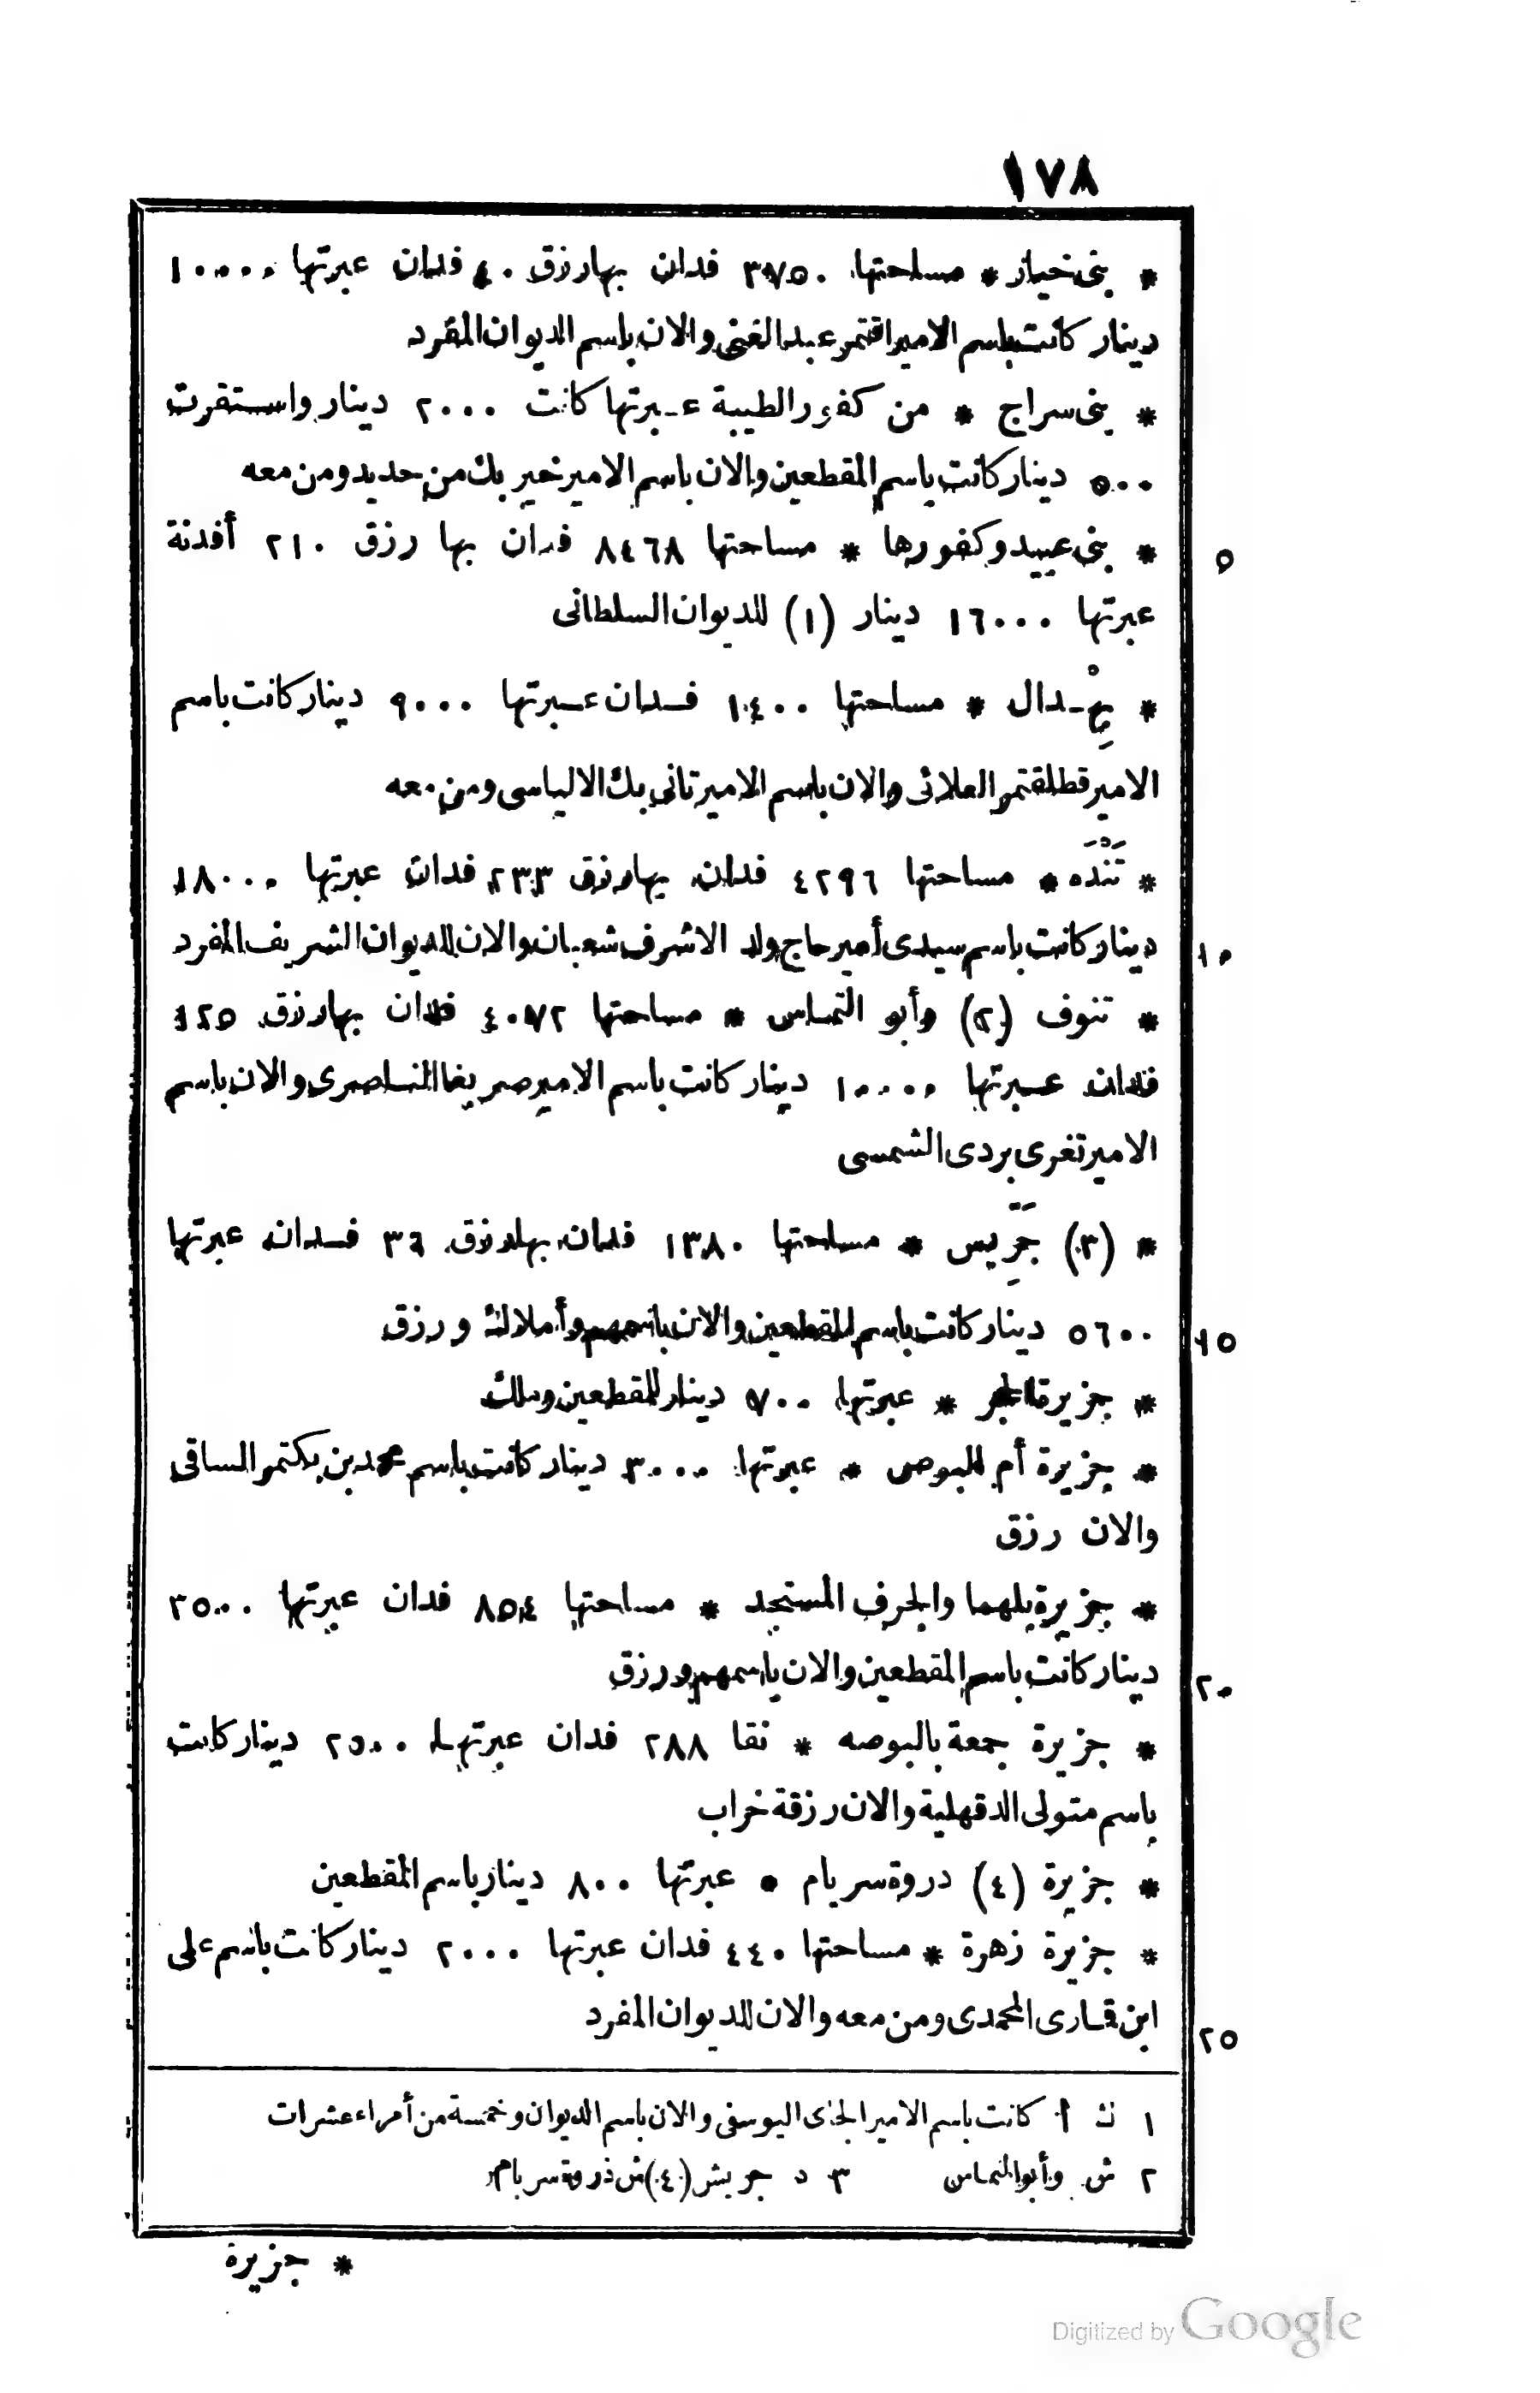 ١٧٨
* بنى خيار * مساحتها ٣٧٥٠ فدان بها رزق ٤٠ فدان عبرتها ١٠٠٠٠
دينار كانت باسم الامير اقتمر عبد الغنى والان باسم الديوان المفرد
* بنى سراج * من كفور الطيبة عبرتها كانت ٢٠٠٠ دينار واستقرت
٥٠٠ دينار كانت باسم المقطعين والان باسم الامير خير بك من حديد ومن معه
* بنى عبيد وكفورها * مساحتها ٨٤٦٨ فدان بها رزق ٢١٠ أفدنة
٥
عبرتها ١٦٠٠٠ دينار (١) للديوان السلطانى
* مساحتها ١٤٠٠ فدان عبرتها ٩٠٠٠ دينار كانت باسم
الامير قطلقتمر العلائى والان باسم الامير تانى بك الالياسى ومن معه
* تَنْدَه * مساحتها ٤٢٩٦ فدان بها رزق ٢٣٣ فدان عبرتها ١٨٠٠٠
دينار كانت باسم سيدى أمير حاج ولد الاشرف شعبان والان للديوان الشريف المفرد
١٠
* تنوف (٢) وأبو التماس * مساحتها ٤٠٧٢ فدان بها رزق ١٢٥
فدان عبرتها ١٠٠٠٠ دينار كانت باسم الامير صريغا الناصرى والان باسم
الامير تغرى بردى الشمسى
* (٣) جَرِّيس * مساحتها ١٣٨٠ فدان بها رزق ٣٦ فدان عبرتها
٥٦٠٠ دينار كانت باسم المقطعين والان باسمهم وأملاك ورزق
١٥
* جزيرة * عبرتها ٧٠٠ دينار للمقطعين وملك
* جزيرة أم البوص * عبرتها ٣٠٠٠ دينار كانت باسم محمد بن بكتمر الساقى
والان رزق
* جزيرة بلهما والجرف المستجد * مساحتها ٨٥٤ فدان عبرتها ٣٥٠٠
دينار كانت باسم المقطعين والان باسمهم ورزق
٢٠
* جزيرة جمعة بالبوصه * نقا ٢٨٨ فدان عبرتها ٢٥٠٠ دينار كانت
باسم متولى الدقهلية والان رزقة خراب
* جزيرة (٤) دروة سريام * عبرتها ٨٠٠ دينار باسم المقطعين
* جزيرة زهرة * مساحتها ٤٤٠ فدان عبرتها ٢٠٠٠ دينار كانت باسم على
ابن قارى المحمدى ومن معه والان للديوان المفرد
٢٥
١ ث أ كانت باسم الامير الجاى اليوسفى والان باسم الديوان وخمسة من أمراء عشرات
٢ ش وأبو النماس ٣ د جريش (٤) ش ذروة سربام
* جزيرة
Digitized by Google